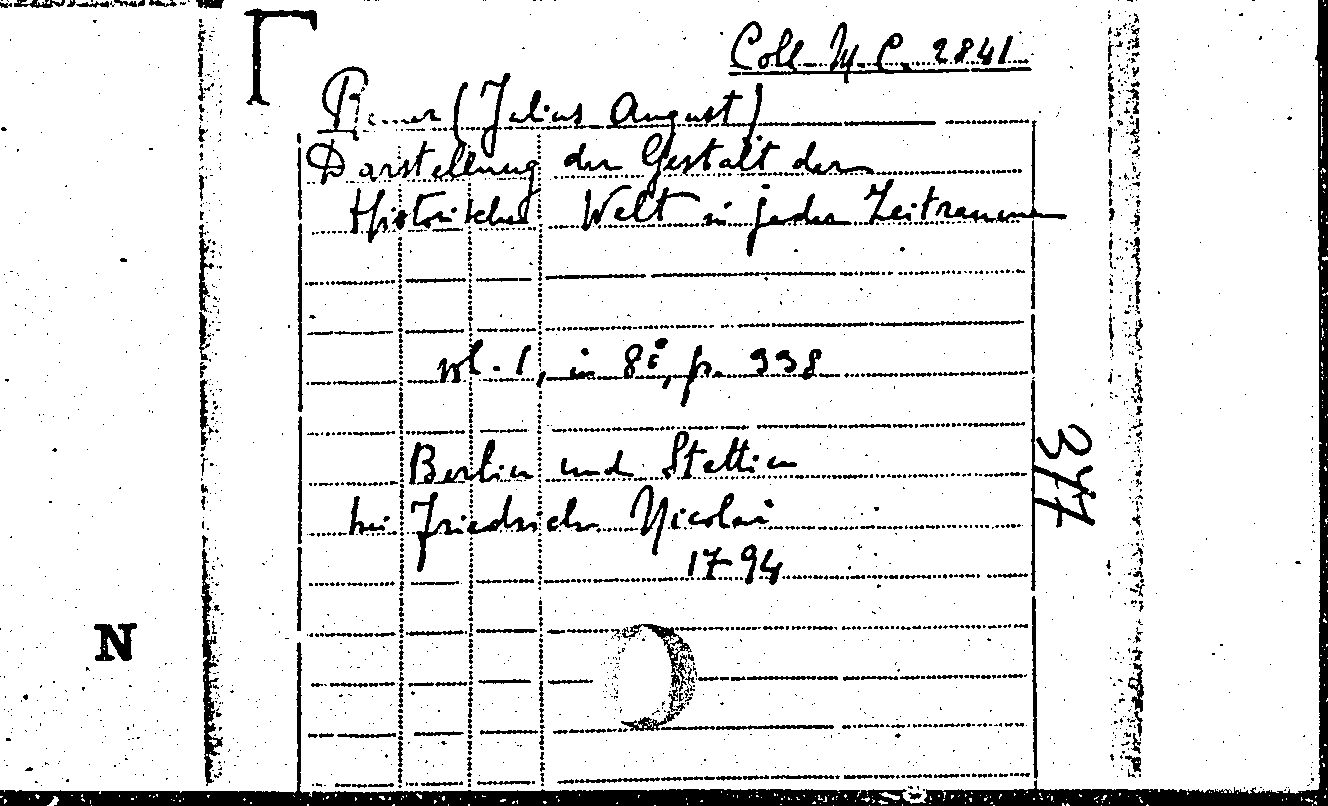 Coll. M. C. 2841
Remer (Julius August)
Darstellung der Gestalt der
Historischen Welt in jeden Zeitraume
vol. 1, in 8º, p. 338
Berlin und Stettin
bei Friedrich Nicolai
1794
377
N